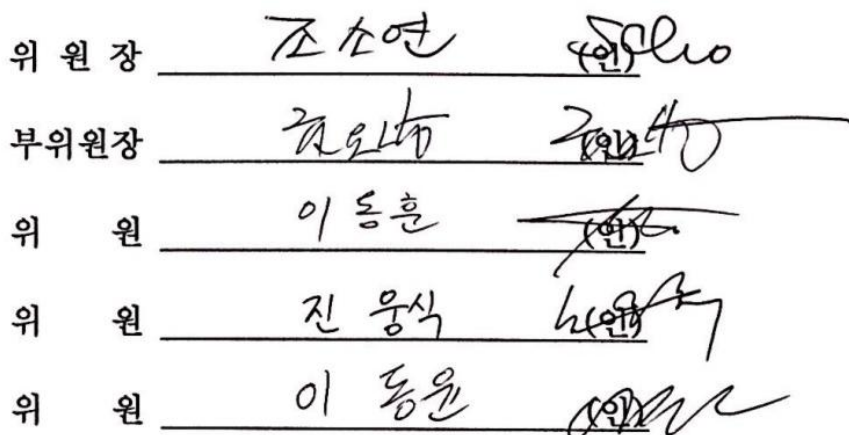 위 원 장 조소연 (인)
부위원장 (인)
위 원 이동훈 (인)
위 원 진웅식 (인)
위 원 이동윤 (인)